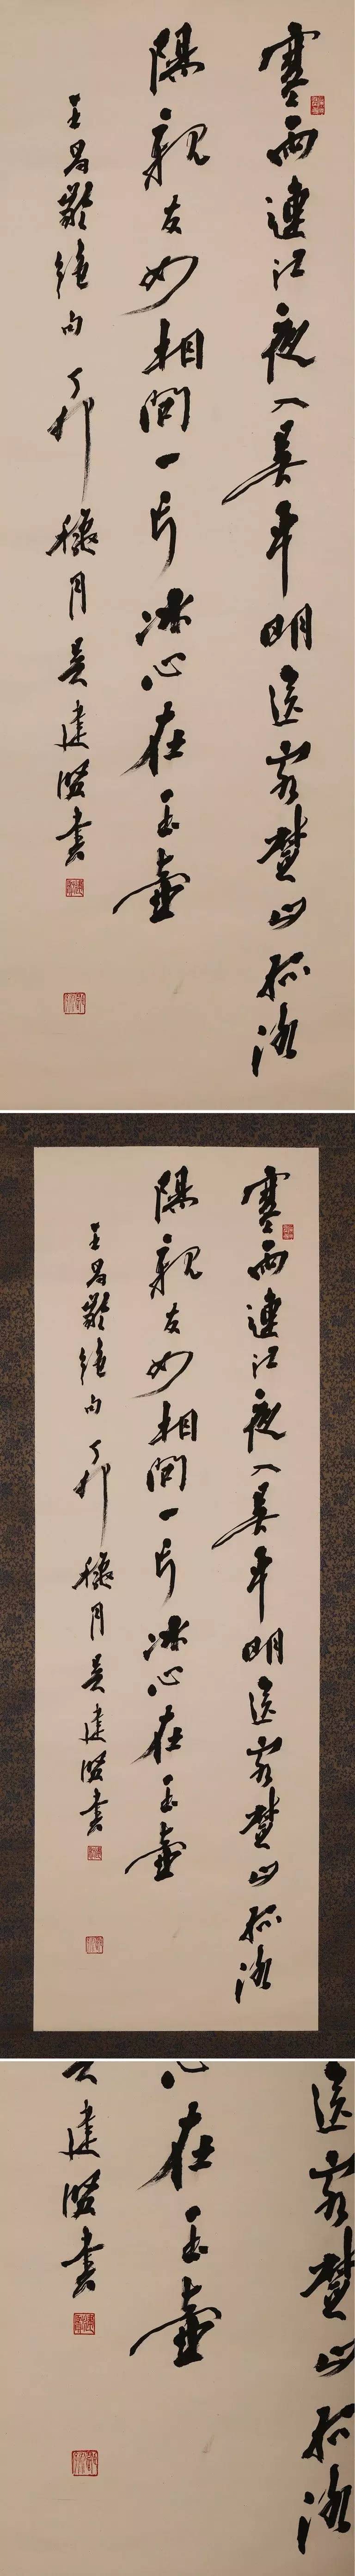 寒雨連江夜入吴平明送客楚山孤洛
陽親友如相問一片冰心在玉壺
王昌齡絶句 丁卯穐月吴建賢書
寒雨連江夜入吴平明送客楚山孤洛
陽親友如相問一片冰心在玉壺
王昌齡絶句 丁卯穐月吴建賢書
送客楚山孤洛
心在玉壺
建賢書